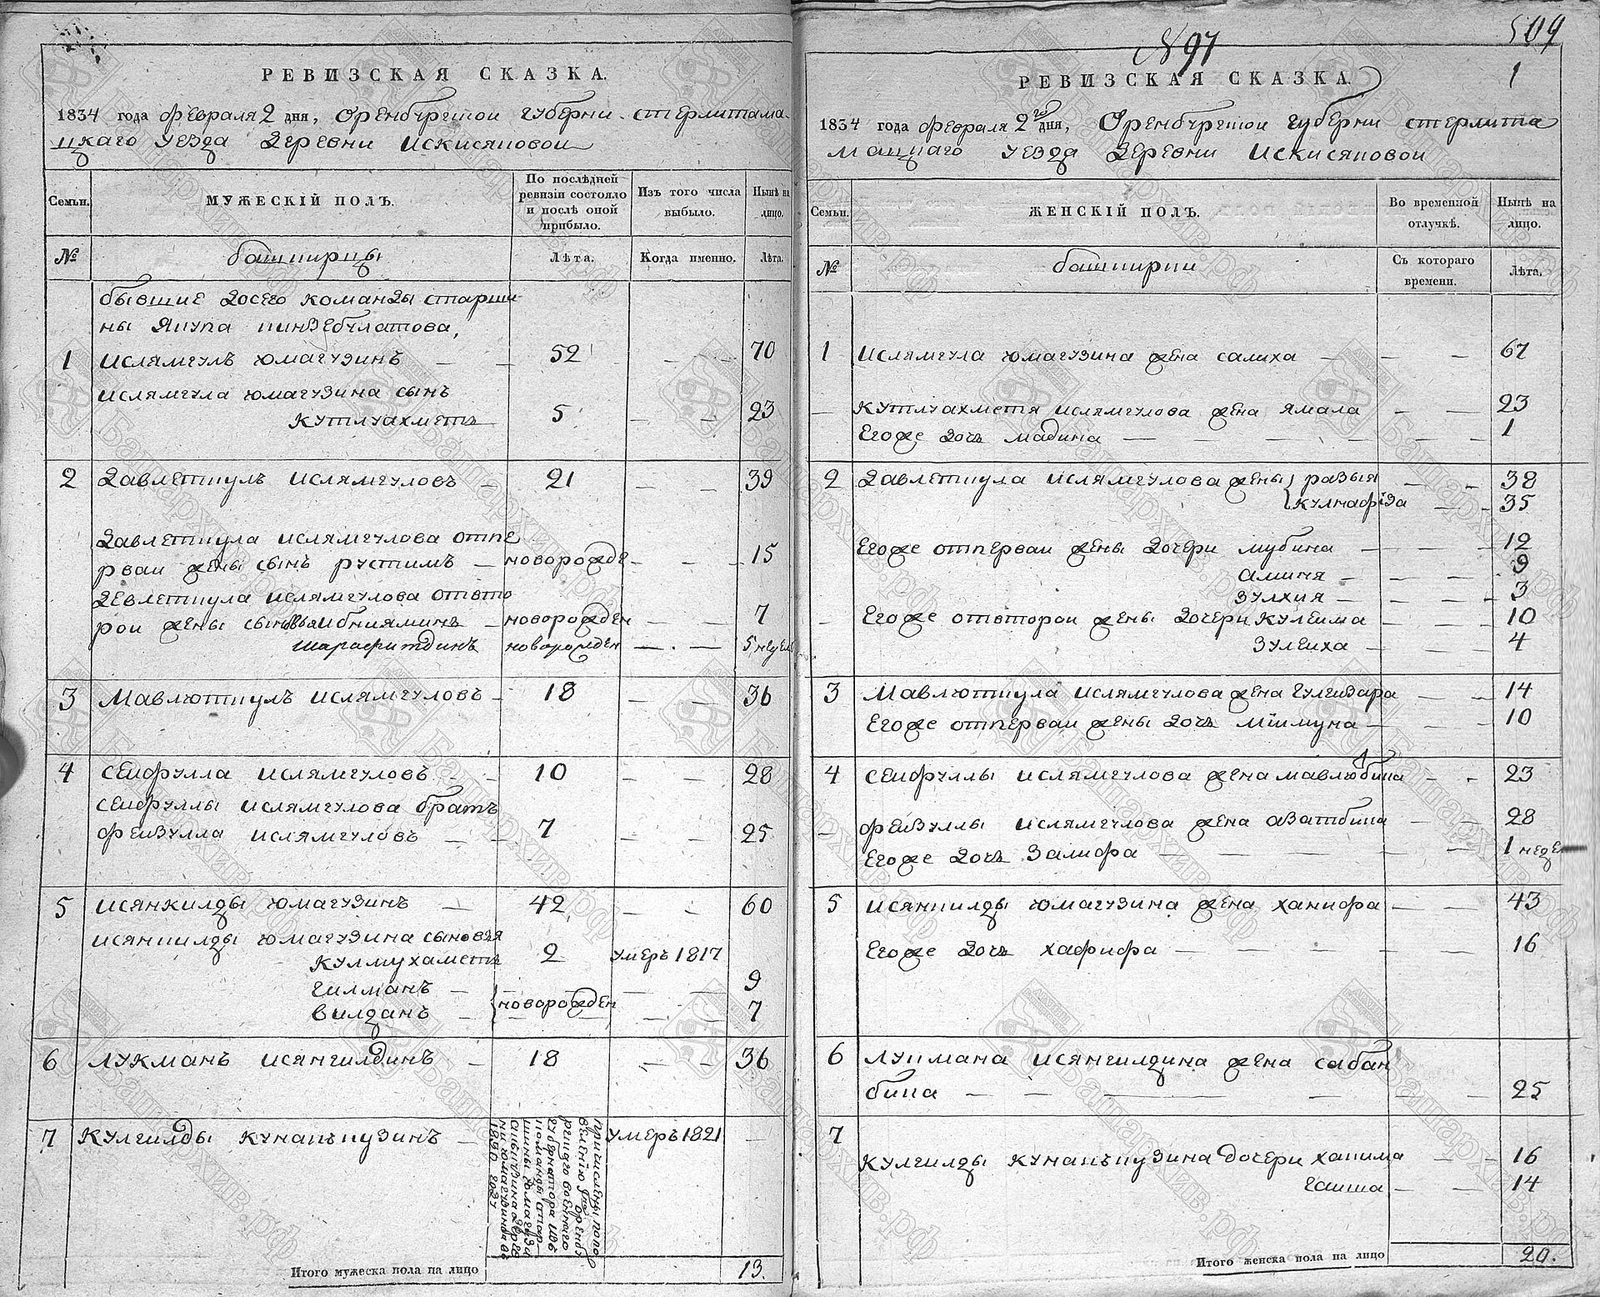 РЕВИЗСКАЯ СКАЗКА.
1834 года февраля 2 дня, Оренбургской губерни стерлитама
цкаго уезда деревни Искисяповой
Семьи.
МУЖЕСКІЙ ПОЛЪ.
По послѣдней ревизіи состояло и послѣ оной прибыло.
Изъ того числа выбыло.
Нынѣ на лицо.
№
башкирцы
Лѣта.
Когда именно.
Лѣта.
бывшие досего команды старши
ны Якупа
1 ислямгулъ юмагузинъ — 52 — — 70
ислямгула юмагузина сынъ
кутлуахметъ 5 — — 23
2 давлеткулъ ислямгуловъ — 21 — — 39
давлеткула ислямгулова отпе
рвай жены сынъ рустимъ — новорожде — — 15
девлеткула ислямгулова отвто
рой жены сыновья ибнияминъ — новорожден — — 7
шарафитдинъ новорожден — — 5 недел
3 Мавлюткулъ ислямгуловъ — 18 — — 36
4 сейфулла ислямгуловъ — 10 — — 28
сейфуллы ислямгулова братъ
фейзулла ислямгуловъ — 7 — — 25
5 исянкилды юмагузинъ — 42 — — 60
исянкилды юмагузина сыновья
кулмухаметъ 2 умеръ 1817
гилманъ — новорожден — 9
вилданъ — — — 7
6 лукманъ исянгилдинъ — 18 — — 36
7 кулгилды кунакъкузинъ — умеръ 1821 —
Итого мужеска пола на лицо 13.
№ 97
509
1
РЕВИЗСКАЯ СКАЗКА.
1834 года февраля 2го дня, Оренбургской губерни стерлита
мацкаго уезда деревни Искисяповой
Семьи.
ЖЕНСКІЙ ПОЛЪ.
Во временной отлучкѣ.
Нынѣ на лицо.
№
башкирки
Съ котораго времени.
Лѣта.
1 ислямгула юмагузина жена салиха — — — 67
кутлуахметя ислямгулова жена ямала — — 23
Егоже дочь мадина — — — 1
2 давлеткула ислямгулова жены разыя — — 38
кулнафіза — — 35
Егоже отпервай жены дочери мубина — — — 12
аминя — — — 9
зулхия — — — 3
Егоже отвторой жены дочери кулеима — — — 10
зулеиха — — — 4
3 Мавлюткула ислямгулова жена гулгизара — — 14
Егоже отпервай жены дочь мiимуна — — — 10
4 сейфуллы ислямгулова жена мавлюбика — — 23
фейзуллы ислямгулова жена азатбика — — 28
Егоже дочь залифа — — — 1 недел
5 исянкилды юмагузина жена ханифа — — 43
Егоже дочь хафифа — — — 16
6 лукмана исянгилдина жена сабан
бика — — — 25
7
кулгилды кунакъкузина дочери хакима — — 16
гайша — — 14
Итого женска пола на лицо 20.